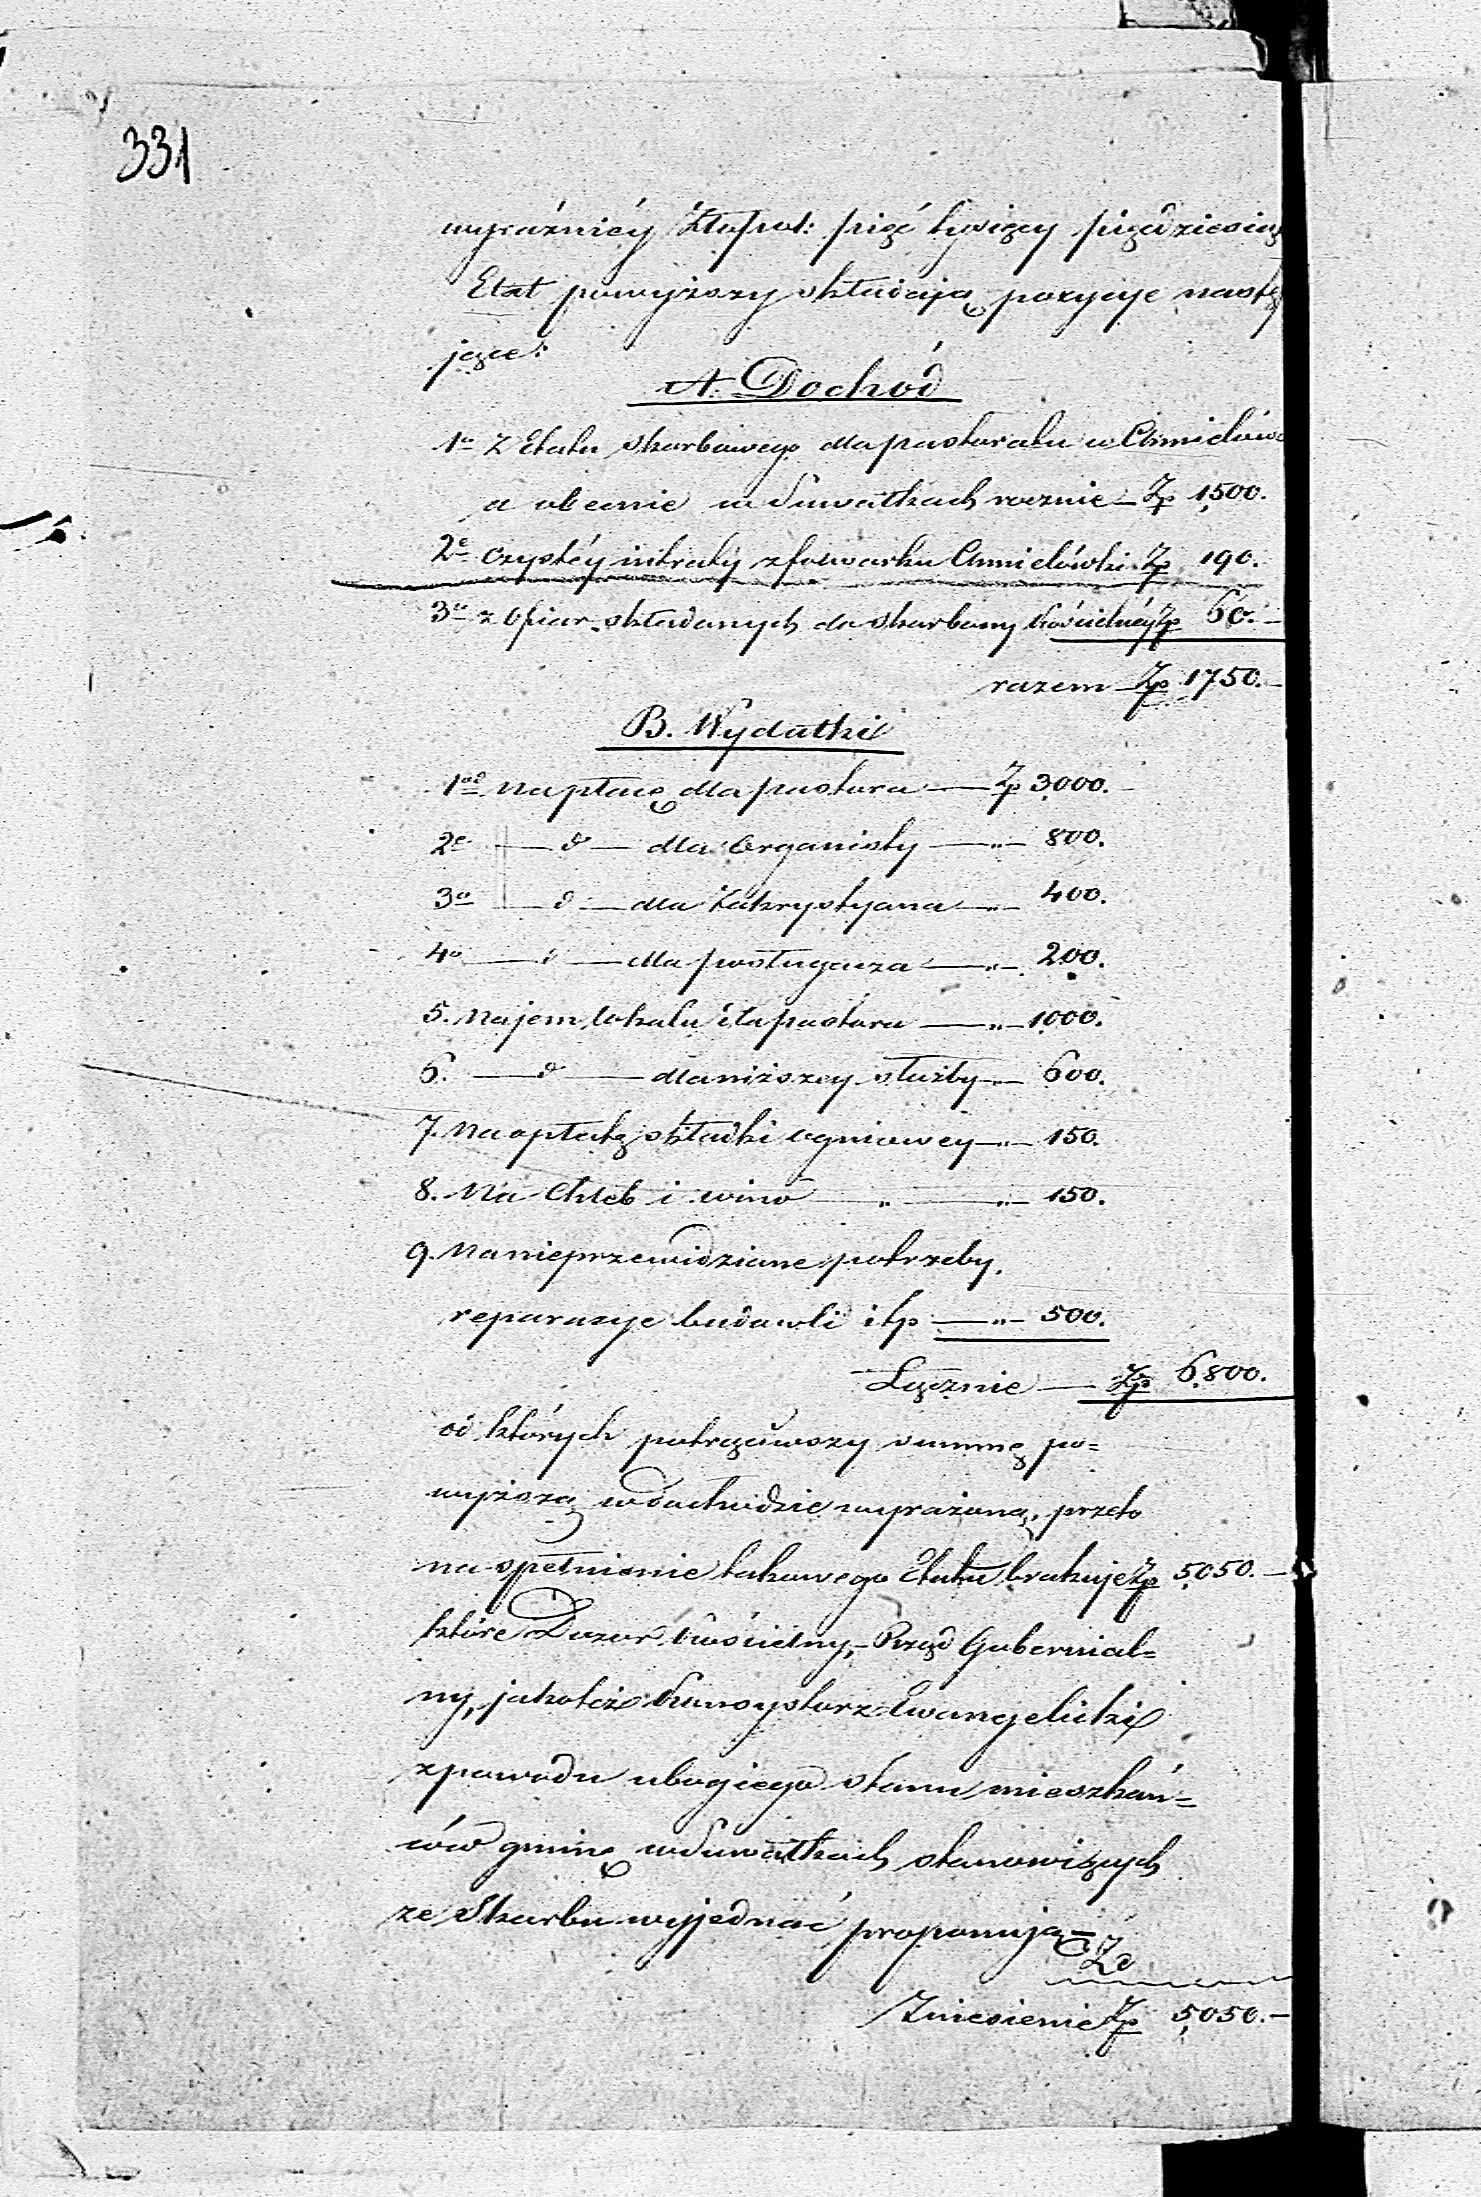 331
wyraźniéy Złopol: pięć tysięcy pięćdziesiąt
Etat powyższy składają pozycye nastę
jące:
A. Dochód
1o Z Etatu skarbowego dla pastoratu w Chmielówce
a obecnie w Suwałkach rocznie — Zp 1,500.
2o czystéy intraty z folwarku Chmielówki Zp 190.
3o z Ofiar składanych do skarbony kościelnéy Zp 60. —
razem Zp 1750. —
B. Wydatki
1od Na płacę dla pastora — Zp 3,000. —
2o — d — dla Organisty — „ — 800.
3o — d — dla Zakrystyana — „ — 400.
4o — d — dla posługacza — „ — 200.
5. Najem lokalu dla pastora — „ — 1,000.
6. — d — dla niższey służby — „ — 600.
7. Na opłatę składki ogniowey — „ — 150.
8. Na Chleb i wino „ — „ — 150.
9. Na nieprzewidziane potrzeby,
reparacye budowli itp — „ — 500.
Łącznie — Zp 6,800.
od których potrąciwszy summę po=
wyższą w dochodzie wyrażoną, przeto
na spełnienie takowego Etatu brakuje Zp 5,050. —
które Dozór kościelny, Rząd Gubernial=
ny, jakoteż Konsystorz Ewangelicki
z powodu ubogiego stanu mieszkań=
ców gminę w Suwałkach stanowiących
ze Skarbu wyjednać proponują —
Zniesienie Zp 5,050. —